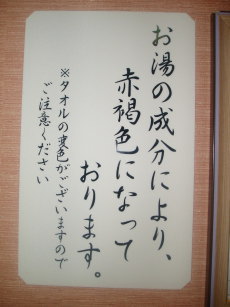 お湯の成分により、
赤褐色になって
おります。
※タオルの変色がございますので
ご注意ください